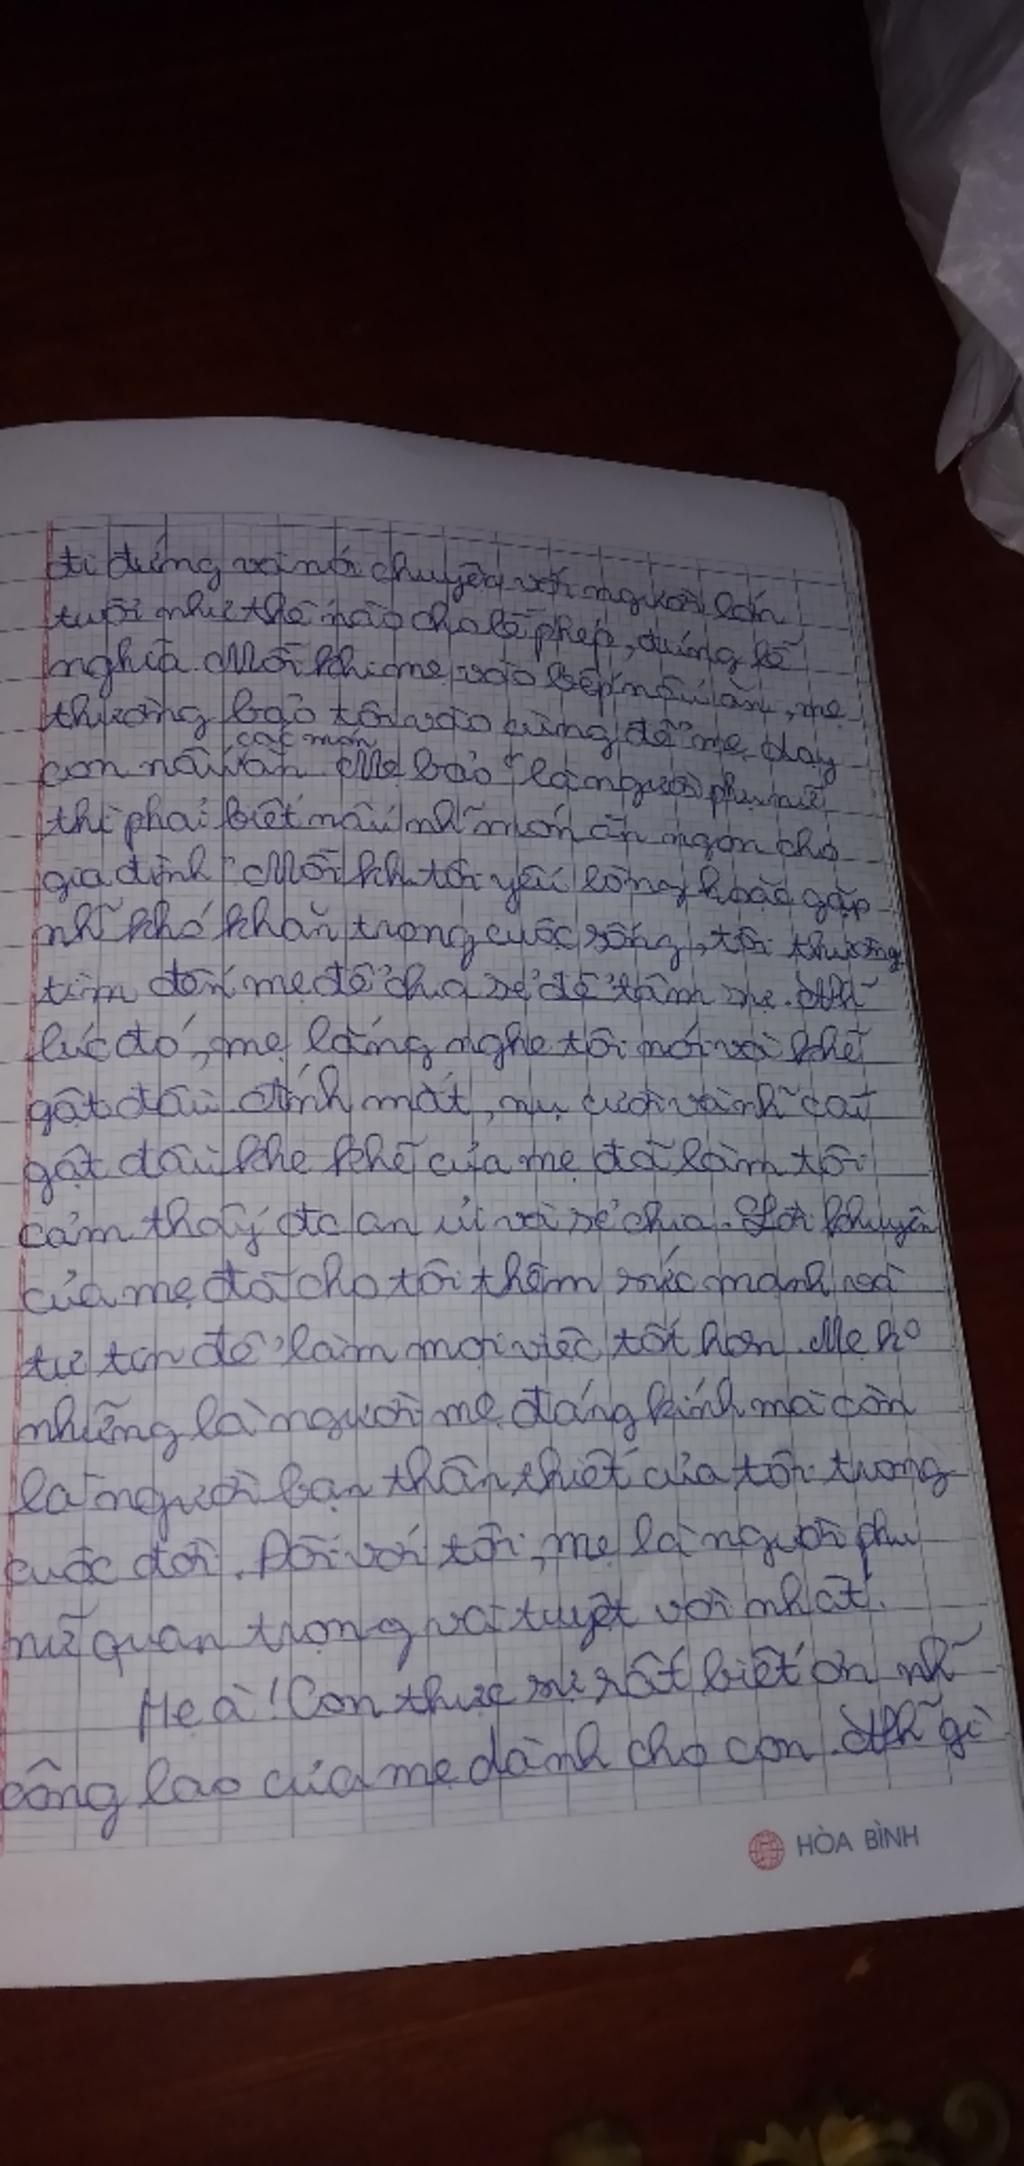 đi đứng và nói chuyện với người lớn
tuổi như thế nào cho lễ phép, đúng lễ
nghĩa. Mỗi khi mẹ vào bếp nấu ăn, mẹ
thường bảo tôi vào cùng để mẹ dạy
các món
con nấu ăn. Mẹ bảo "là người phụ nữ
thì phải biết nấu nh~ món ăn ngon cho
gia đình". Mỗi kh tôi yếu lòng hoặc gặp
nh~ khó khăn trong cuộc sống, tôi thường
tìm đến mẹ để chia sẻ để tâm sự. Nh~
lúc đó, mẹ lắng nghe tôi nói và khẽ
gật đầu. Ánh mắt, nụ cười và nh~ cái
gật đầu khe khẽ của mẹ đã làm tôi
cảm thấy đc an ủi và sẻ chia. Lời khuyên
của mẹ đã cho tôi thêm sức mạnh và
tự tin để làm mọi việc tốt hơn. Mẹ ko
những là người mẹ đáng kính mà còn
là người bạn thân thiết của tôi trong
cuộc đời. Đối với tôi, mẹ là người phụ
nữ quan trọng và tuyệt vời nhất.
Mẹ à! Con thực sự rất biết ơn nh~
công lao của mẹ dành cho con. Nh~ gì
HÒA BÌNH